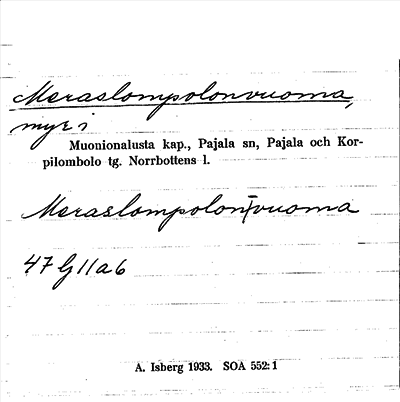 Meraslompolonvuoma,
myr i
Muonionalusta kap., Pajala sn, Pajala och Kor-
pilombolo tg. Norrbottens l.
Meraslompolon|vuoma
47 G 11 a 6
A. Isberg 1933. SOA 552:1